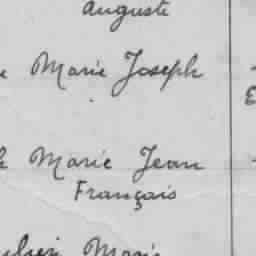 Auguste
Marie Joseph
Marie Jean
Français
Marie